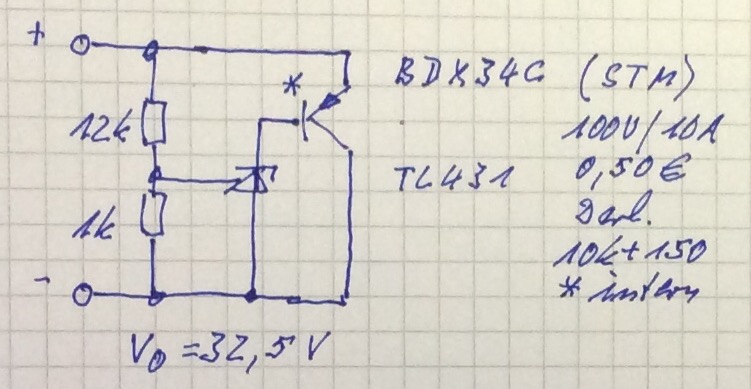 +
*
BDX34C (STM)
12k
100V/10A
TL431
0,50€
1k
Darl.
10k+150
-
* intern
V0 = 32,5 V